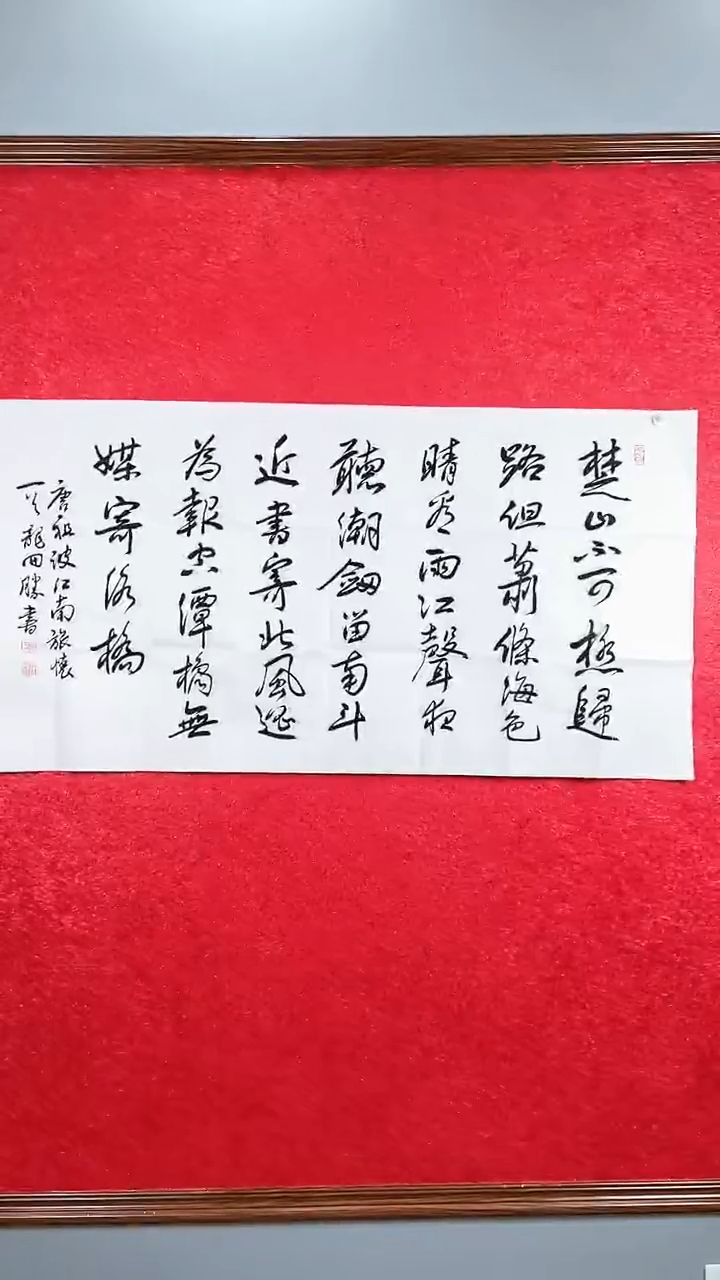 楚山不可極歸
路但蕭條海色
晴看雨江聲夜
聽潮劔留南斗
近書寄北風遥
為報空潭橘無
媒寄洛橋
唐祖詠江南旅懷
龍田勝書